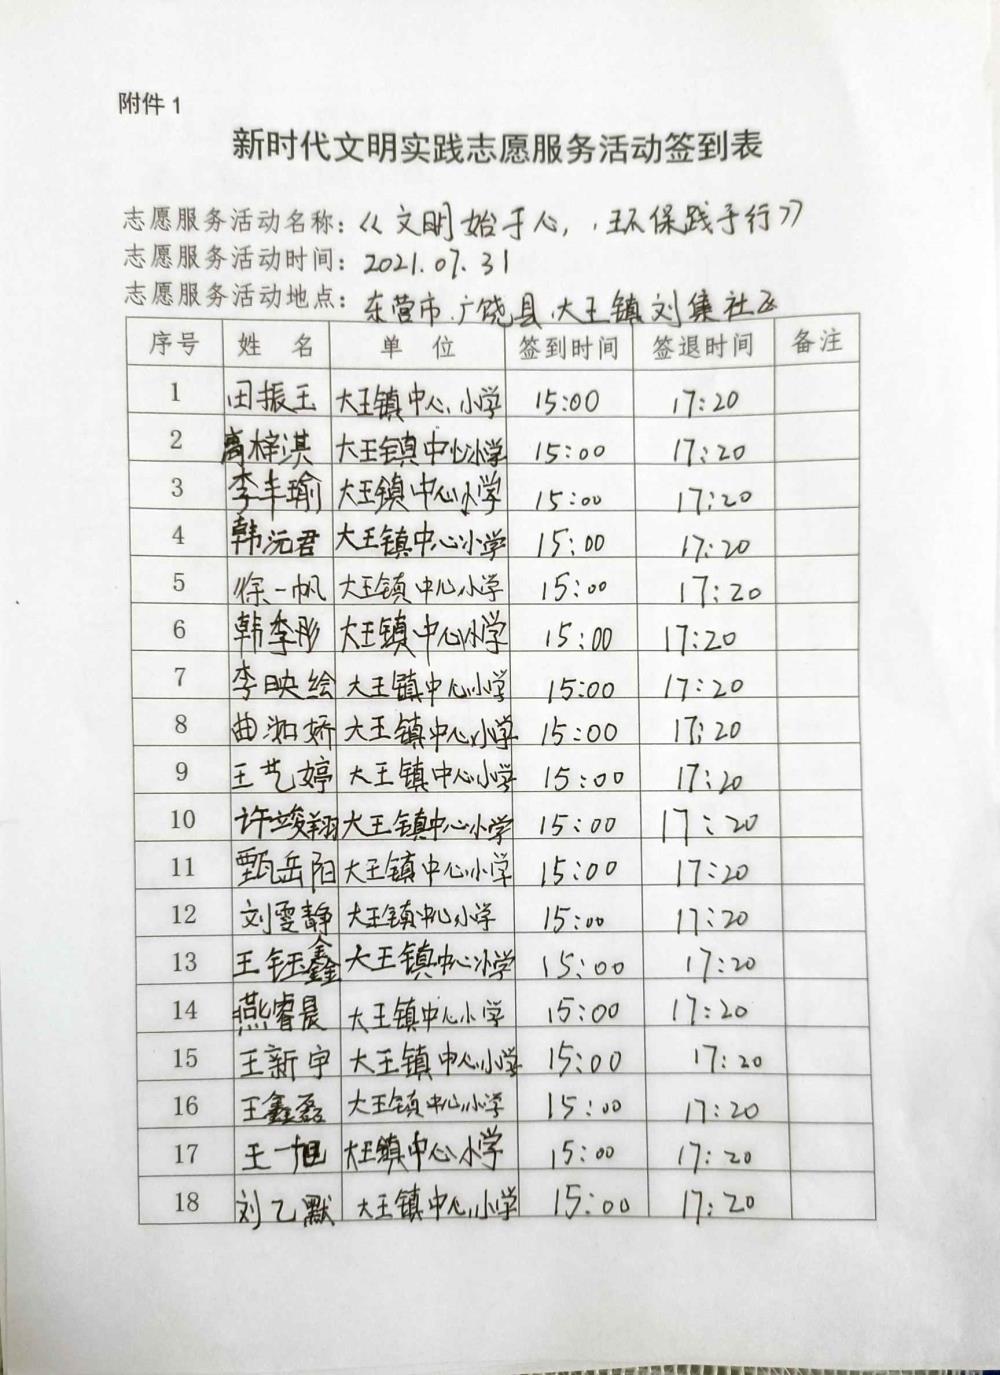 附件 1
新时代文明实践志愿服务活动签到表
志愿服务活动名称：《文明始于心，环保践于行》
志愿服务活动时间：2021.07.31
志愿服务活动地点：东营市广饶县大王镇刘集社区
序号 姓名 单位 签到时间 签退时间 备注
1 田振玉 大王镇中心小学 15:00 17:20
2 高梓淇 大王镇中心小学 15:00 17:20
3 李丰瑜 大王镇中心小学 15:00 17:20
4 韩沅君 大王镇中心小学 15:00 17:20
5 徐一帆 大王镇中心小学 15:00 17:20
6 韩李彤 大王镇中心小学 15:00 17:20
7 李映绘 大王镇中心小学 15:00 17:20
8 曲湘娇 大王镇中心小学 15:00 17:20
9 王艺婷 大王镇中心小学 15:00 17:20
10 许竣翔 大王镇中心小学 15:00 17:20
11 甄岳阳 大王镇中心小学 15:00 17:20
12 刘雯静 大王镇中心小学 15:00 17:20
13 王钰鑫 大王镇中心小学 15:00 17:20
14 燕睿晨 大王镇中心小学 15:00 17:20
15 王新宇 大王镇中心小学 15:00 17:20
16 王鑫磊 大王镇中心小学 15:00 17:20
17 王一旭 大王镇中心小学 15:00 17:20
18 刘乙默 大王镇中心小学 15:00 17:20